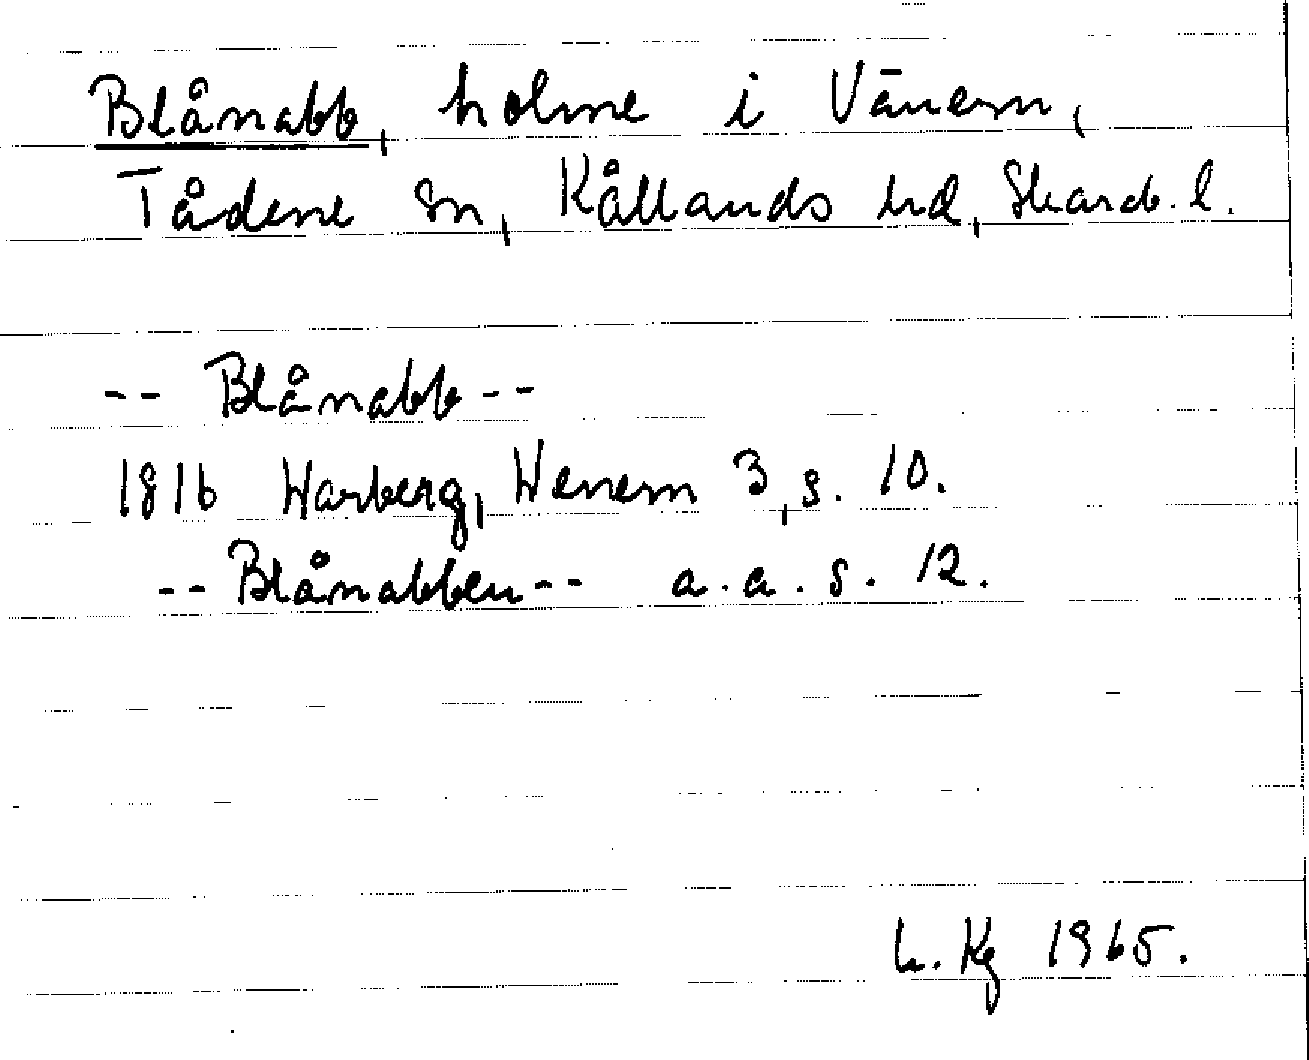 Blånabb, holme i Vänern,
Tådene sn, Kållands hd, Skarab. l.
-- Blånabb --
1816 Warberg, Wenern 3, s. 10.
-- Blånabben -- a. a. s. 12.
L. Kg 1965.